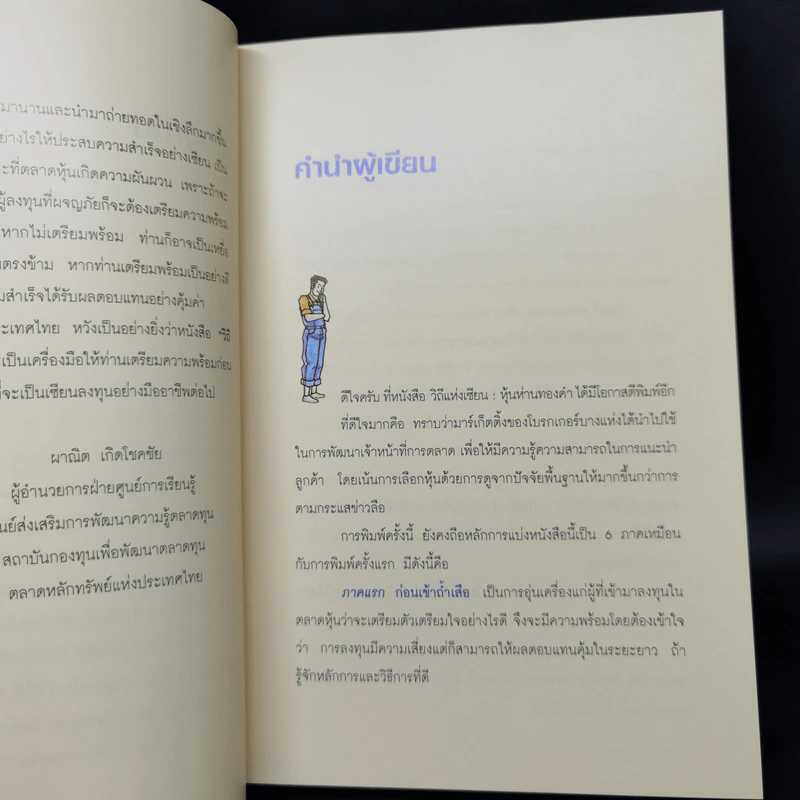 มานานและนำมาถ่ายทอดในเชิงลึกมากขึ้น
อย่างไรให้ประสบความสำเร็จอย่างเซียน เป็น
ะที่ตลาดหุ้นเกิดความผันผวน เพราะถ้าจะ
ผู้ลงทุนที่ผจญภัยก็จะต้องเตรียมความพร้อม
หากไม่เตรียมพร้อม ท่านก็อาจเป็นเหยื่อ
ตรงข้าม หากท่านเตรียมพร้อมเป็นอย่างดี
สำเร็จได้รับผลตอบแทนอย่างคุ้มค่า
ระเทศไทย หวังเป็นอย่างยิ่งว่าหนังสือ "วิถี
เป็นเครื่องมือให้ท่านเตรียมความพร้อมก่อน
ที่จะเป็นเซียนลงทุนอย่างมืออาชีพต่อไป
ผาณิต เกิดโชคชัย
ผู้อำนวยการฝ่ายศูนย์การเรียนรู้
นย์ส่งเสริมการพัฒนาความรู้ตลาดทุน
สถาบันกองทุนเพื่อพัฒนาตลาดทุน
ตลาดหลักทรัพย์แห่งประเทศไทย
คำนำผู้เขียน
ดีใจครับ ที่หนังสือ วิถีแห่งเซียน : หุ้นห่านทองคำ ได้มีโอกาสตีพิมพ์อีก
ที่ดีใจมากคือ ทราบว่ามาร์เก็ตติ้งของโบรกเกอร์บางแห่งได้นำไปใช้
ในการพัฒนาเจ้าหน้าที่การตลาด เพื่อให้มีความรู้ความสามารถในการแนะนำ
ลูกค้า โดยเน้นการเลือกหุ้นด้วยการดูจากปัจจัยพื้นฐานให้มากขึ้นกว่าการ
ตามกระแสข่าวลือ
การพิมพ์ครั้งนี้ ยังคงถือหลักการแบ่งหนังสือนี้เป็น 6 ภาคเหมือน
กับการพิมพ์ครั้งแรก มีดังนี้คือ
ภาคแรก ก่อนเข้าถ้ำเสือ เป็นการอุ่นเครื่องแก่ผู้ที่เข้ามาลงทุนใน
ตลาดหุ้นว่าจะเตรียมตัวเตรียมใจอย่างไรดี จึงจะมีความพร้อมโดยต้องเข้าใจ
ว่า การลงทุนมีความเสี่ยงแต่ก็สามารถให้ผลตอบแทนคุ้มในระยะยาว ถ้า
รู้จักหลักการและวิธีการที่ดี